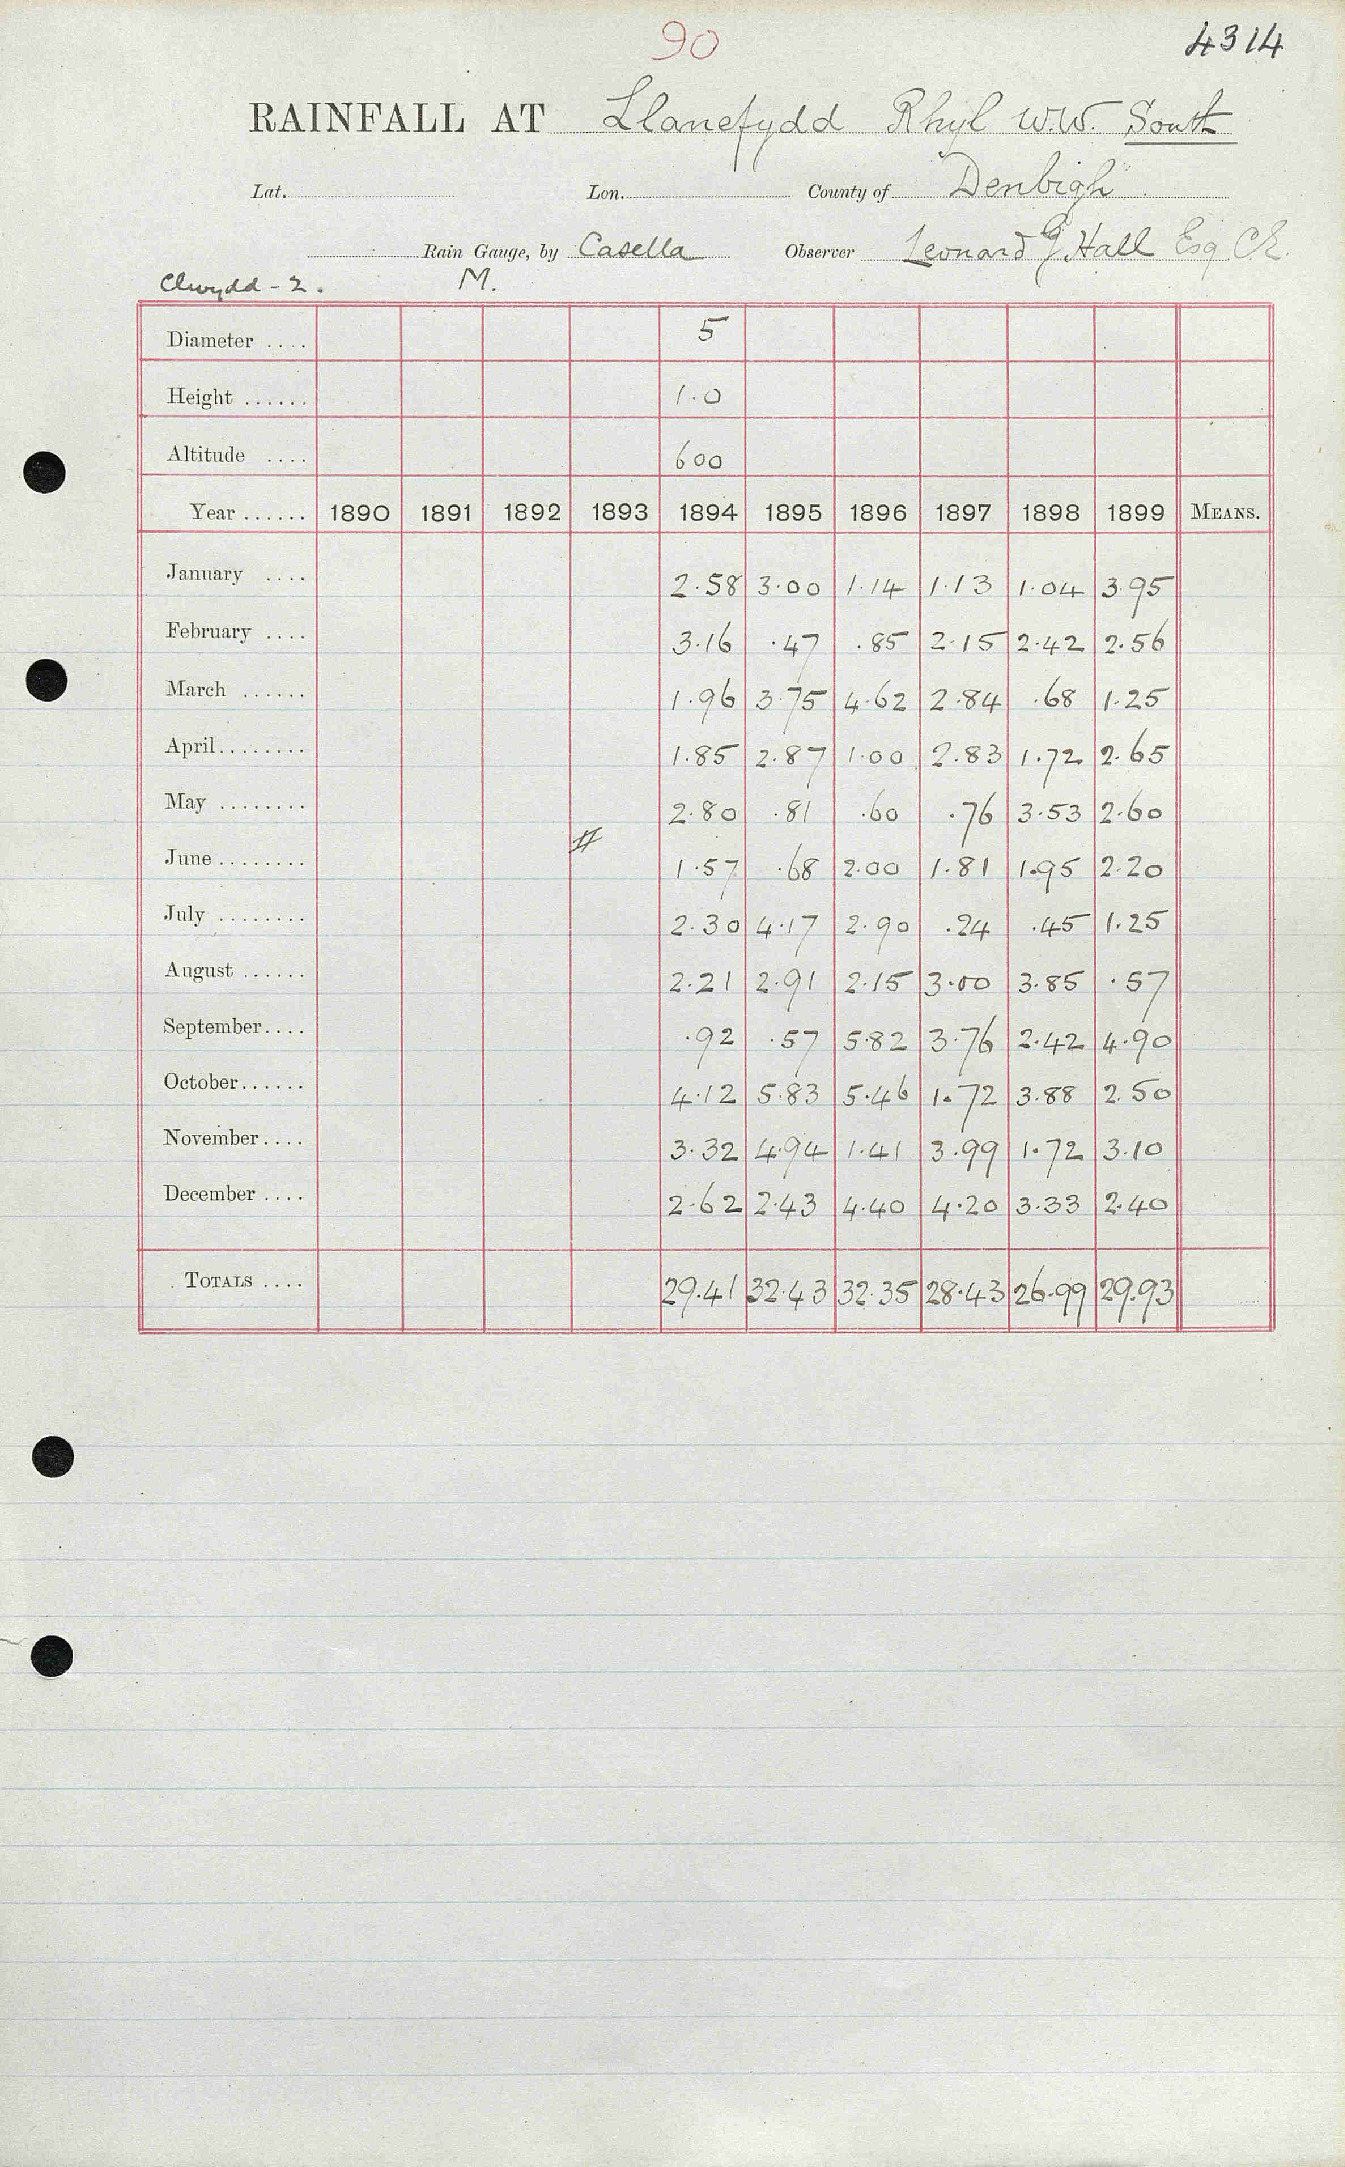 90
4314
RAINFALL AT Llanefydd Rhyl W.W. South
Lat. Lon. County of Denbigh
Rain Gauge, by Casella Observer Leonard G Hall Esq CE
Clwydd - 2. M.
Diameter .... 5
Height ...... 1.0
Altitude .... 600
Year ...... 1890 1891 1892 1893 1894 1895 1896 1897 1898 1899 MEANS.
January .... 2.58 3.00 1.14 1.13 1.04 3.95
February .... 3.16 .47 .85 2.15 2.42 2.56
March ...... 1.96 3.75 4.62 2.84 .68 1.25
April........ 1.85 2.87 1.00 2.83 1.72 2.65
May ........ 2.80 .81 .60 .76 3.53 2.60
June ........ 1.57 .68 2.00 1.81 1.95 2.20
July ........ 2.30 4.17 2.90 .24 .45 1.25
August ...... 2.21 2.91 2.15 3.00 3.85 .57
September.... .92 .57 5.82 3.76 2.42 4.90
October...... 4.12 5.83 5.46 1.72 3.88 2.50
November.... 3.32 4.94 1.41 3.99 1.72 3.10
December .... 2.62 2.43 4.40 4.20 3.33 2.40
TOTALS .... 29.41 32.43 32.35 28.43 26.99 29.93